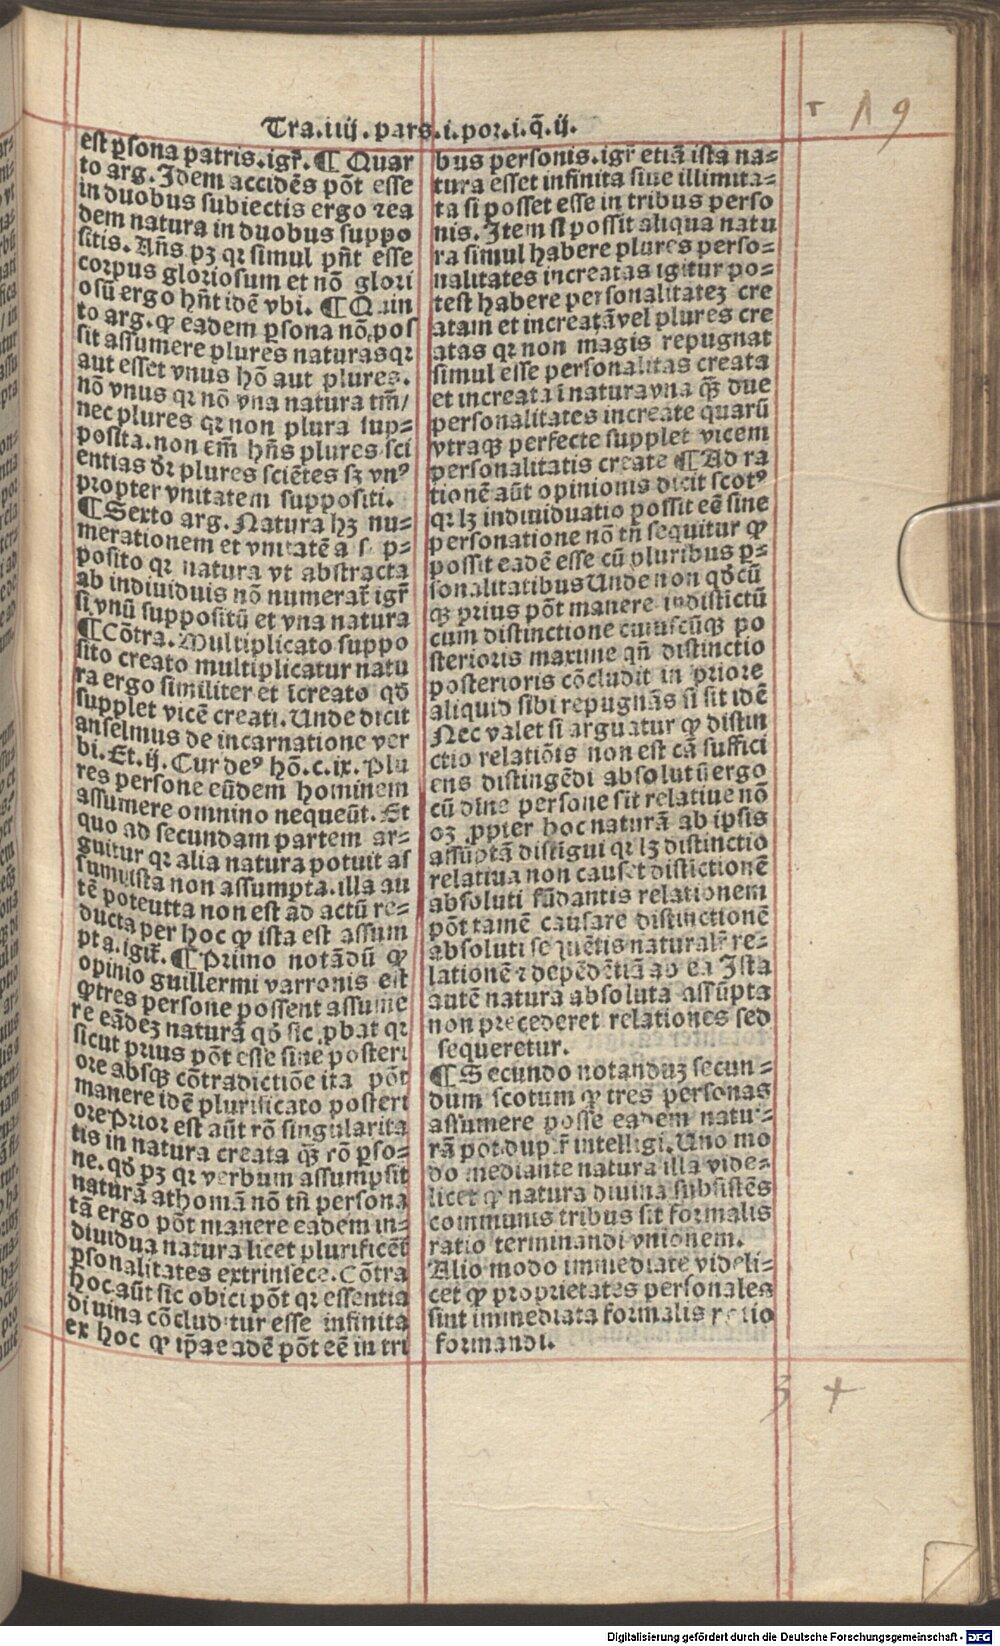 Tra.iiij.pars.i.por.i.q̄.ij.
19
est ꝑsona patris.igr̄.¶ Quar
to arg. Idem accidēs pōt esse
in duobus subiectis ergo ⁊ ea
dem natura in duobus suppo
sitis. Añs pꝫ qꝛ simul pñt esse
corpus gloriosum et nō glori
osū ergo hñt idē vbi. ¶ Quin
to arg. ꝙ eadem ꝑsona nō pos
sit assumere plures naturas qꝛ
aut esset vnus hō aut plures.
nō vnus qꝛ nō vna natura tm̄/
nec plures qꝛ non plura sup-
posita. non em̄ hñs plures sci
entias dr̄ plures sciētes sꝫ vnꝰ
propter vnitatem suppositi.
¶ Sexto arg. Natura hꝫ nu-
merationem et vnitatē a sup-
posito qꝛ natura vt abstracta
ab indiuiduis nō numerat̄ igr̄
si vnū suppositū et vna natura
¶ Cōtra. Multiplicato suppo
sito creato multiplicatur natu
ra ergo similiter et īcreato qd̄
supplet vicē creati. Unde dicit
anselmus de incarnatione ver
bi. Et .ij. Cur deꝰ hō.c.ix. Plu
res persone eūdem hominem
assumere omnino nequeūt. Et
quo ad secundam partem ar-
guitur qꝛ alia natura potuit as
sumi ista non assumpta. illa au
tē poteutta non est ad actū re-
ducta per hoc ꝙ ista est assum
pta. igit̄. ¶ Primo notādū ꝙ
opinio guillermi varronis est
ꝙ tres persone possent assume
re eādeꝫ naturā qd̄ sic ꝓbat qꝛ
sicut prius pōt esse sine posteri
ore absqꝫ cōtradictiōe ita pōt
manere idē plurificato posteri
ore Prior est aūt rō singularita
tis in natura creata qꝫ rō ꝑso-
ne. qd̄ pꝫ qꝛ verbum assumpsit
naturā athomā nō tñ persona
tā ergo pōt manere eadem in-
diuidua natura licet plurificēt̄
ꝑsonalitates extrinsece. Cōtra
hoc aūt sic obici pōt qꝛ essentia
diuina cōcluditur esse infinita
ex hoc ꝙ ip̄a eadē pōt eē in tri
bus personis. igr̄ etiā ista na-
tura esset infinita siue illimita-
ta si posset esse in tribus perso
nis. Item si possit aliqua natu
ra simul habere plures perso-
nalitates increatas igitur po-
test habere personalitateꝫ cre
atam et increatā vel plures cre
atas qꝛ non magis repugnat
simul esse personalitas creata
et increata ī natura vna qꝫ due
personalitates increate quarū
vtraqꝫ perfecte supplet vicem
personalitatis create ¶ Ad ra
tionē aūt opinionis dicit scotꝰ
qꝛ lꝫ indiuiduatio possit eē sine
personatione nō tñ sequitur ꝙ
possit eadē esse cū pluribus ꝑ-
sonalitatibus Unde non qd̄cū
qꝫ prius pōt manere indistictū
cum distinctione cuiuscūqꝫ po
sterioris maxime qñ distinctio
posterioris cōcludit in priore
aliquid sibi repugnās si sit idē
Nec valet si arguatur ꝙ distin
ctio relatiōis non est cā suffici
ens distingēdi absolutū ergo
cū diīne persone sit relatiue nō
oꝫ ꝓpter hoc naturā ab ipsis
assūptā distīgui qꝛ lꝫ distinctio
relatiua non causet distictionē
absoluti fūdantis relationem
pōt tamē causare distinctionē
absoluti sequētis naturalr̄ re-
lationē ⁊ depēdētiā ab ea Ista
autē natura absoluta assūpta
non precederet relationes sed
sequeretur.
¶ Secundo notanduꝫ secun-
dum scotum ꝙ tres personas
assumere posse eadem natu-
rā pōt duplr̄ intelligi. Uno mo
do mediante natura illa vide-
licet ꝙ natura diuina subsistēs
communis tribus sit formalis
ratio terminandi vnionem.
Alio modo immediate videli-
cet ꝙ proprietates personales
sint immediata formalis ratio
formandi.
Digitalisierung gefördert durch die Deutsche Forschungsgemeinschaft - DFG